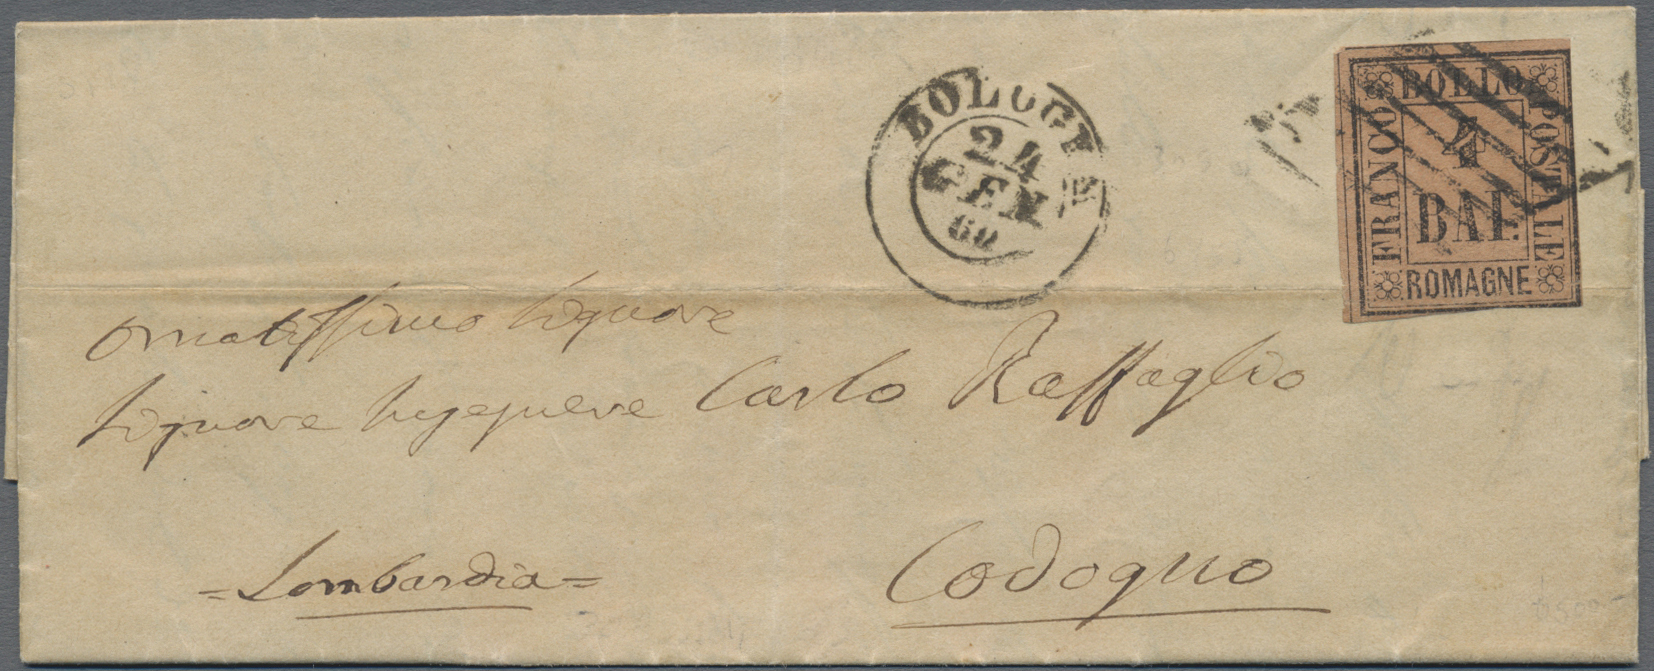 BOLOGNA
24
GEN
60
FRANCO BOLLO POSTALE
4
BAI.
ROMAGNE
Ornatissimo Signore
Signore Ingegnere Carlo Raffaglio
= Lombardia =
Codogno